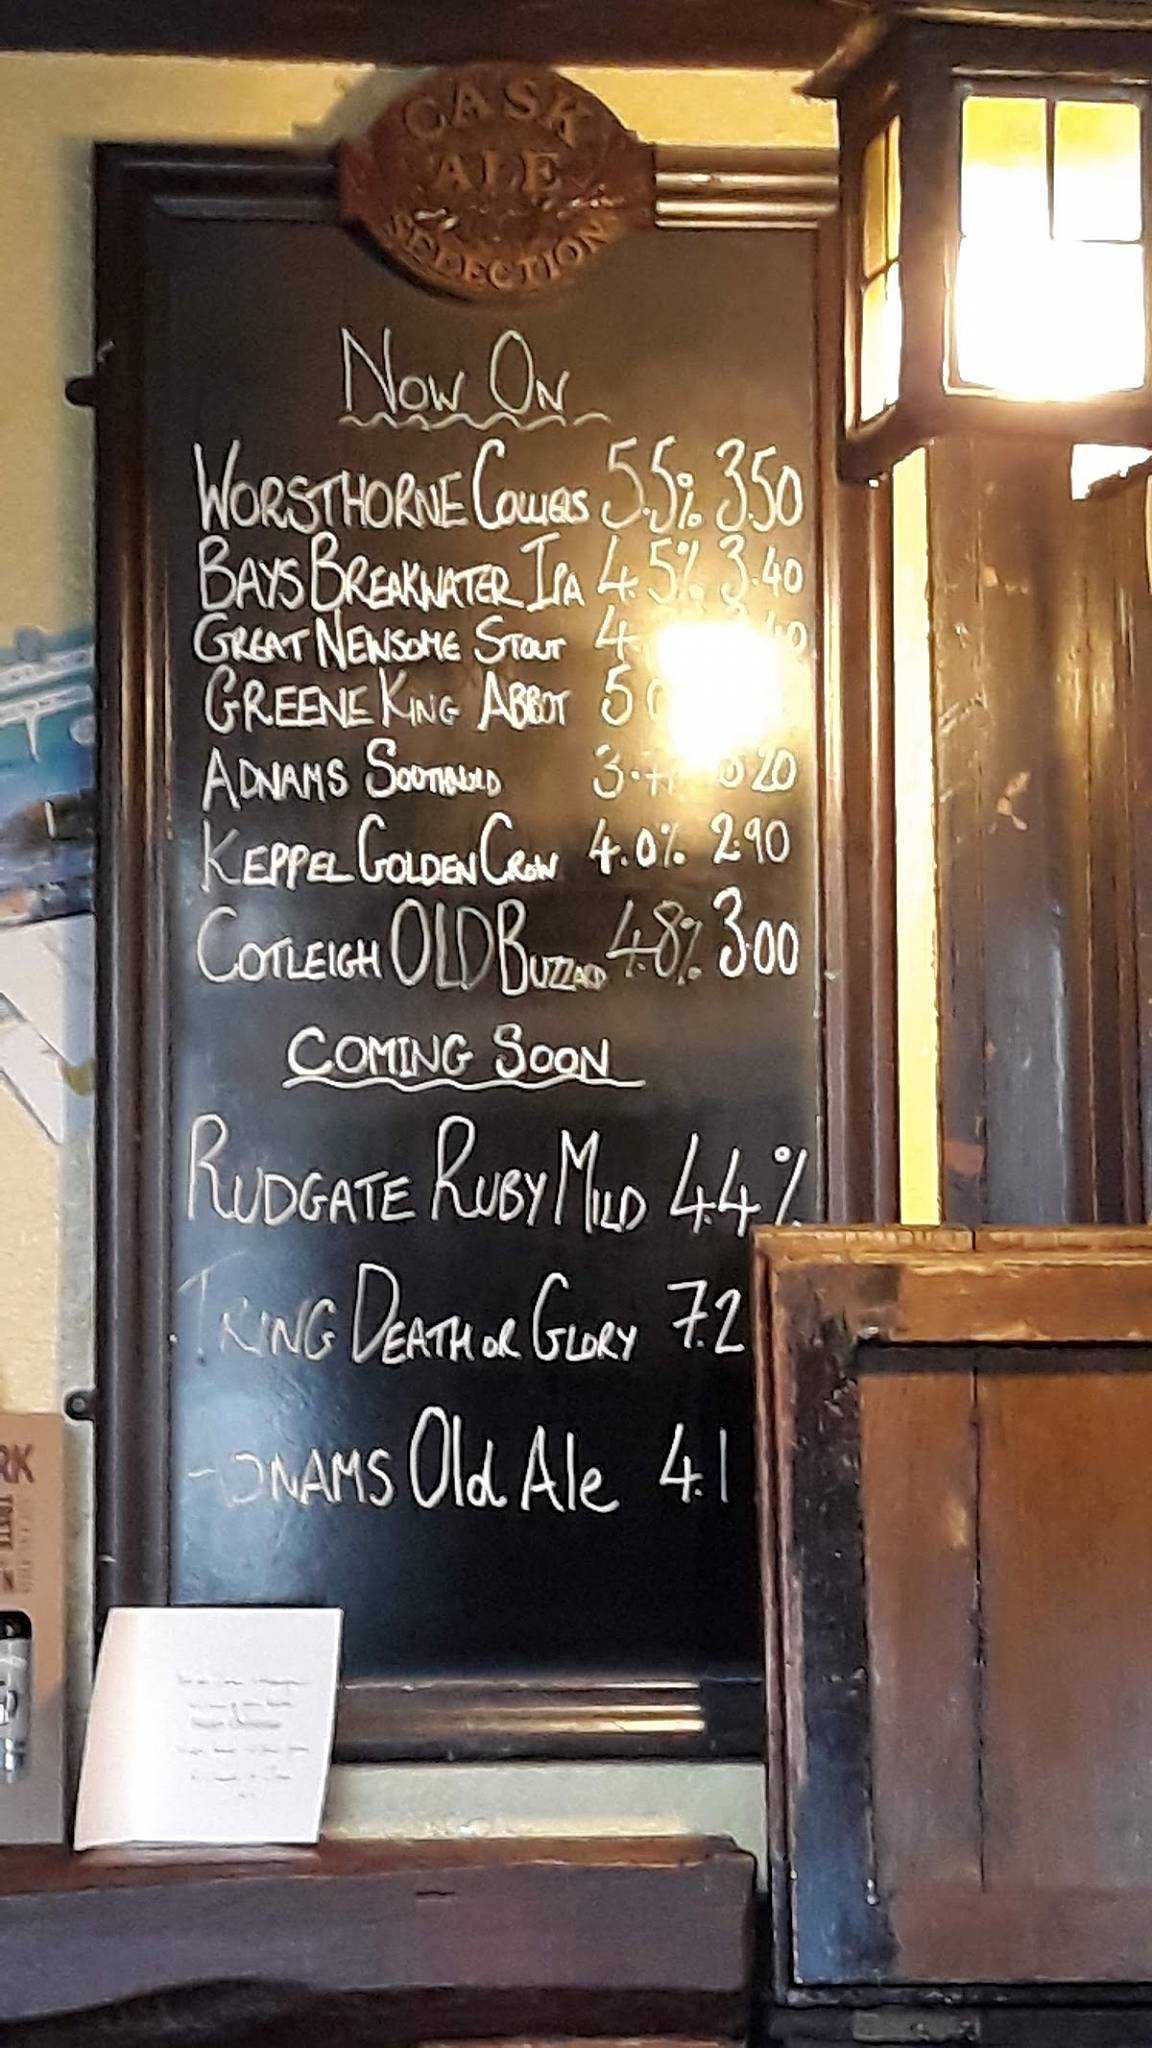 CASK
ALE
SELECTION
NOW ON
WORSTHORNE COLLIERS 5.5% 3.50
BAYS BREAKWATER IPA 4.5% 3.40
GREAT NEWSOME STOUT 4.
GREENE KING ABBOT 5.0
ADNAMS SOUTHWOLD 3.7% 3.20
KEPPEL GOLDEN CROW 4.0% 2.90
COTLEIGH OLD BUZZARD 4.8% 3.00
COMING SOON
RUDGATE RUBY MILD 4.4%
TRING DEATH OR GLORY 7.2
DNAMS Old Ale 4.1
RK